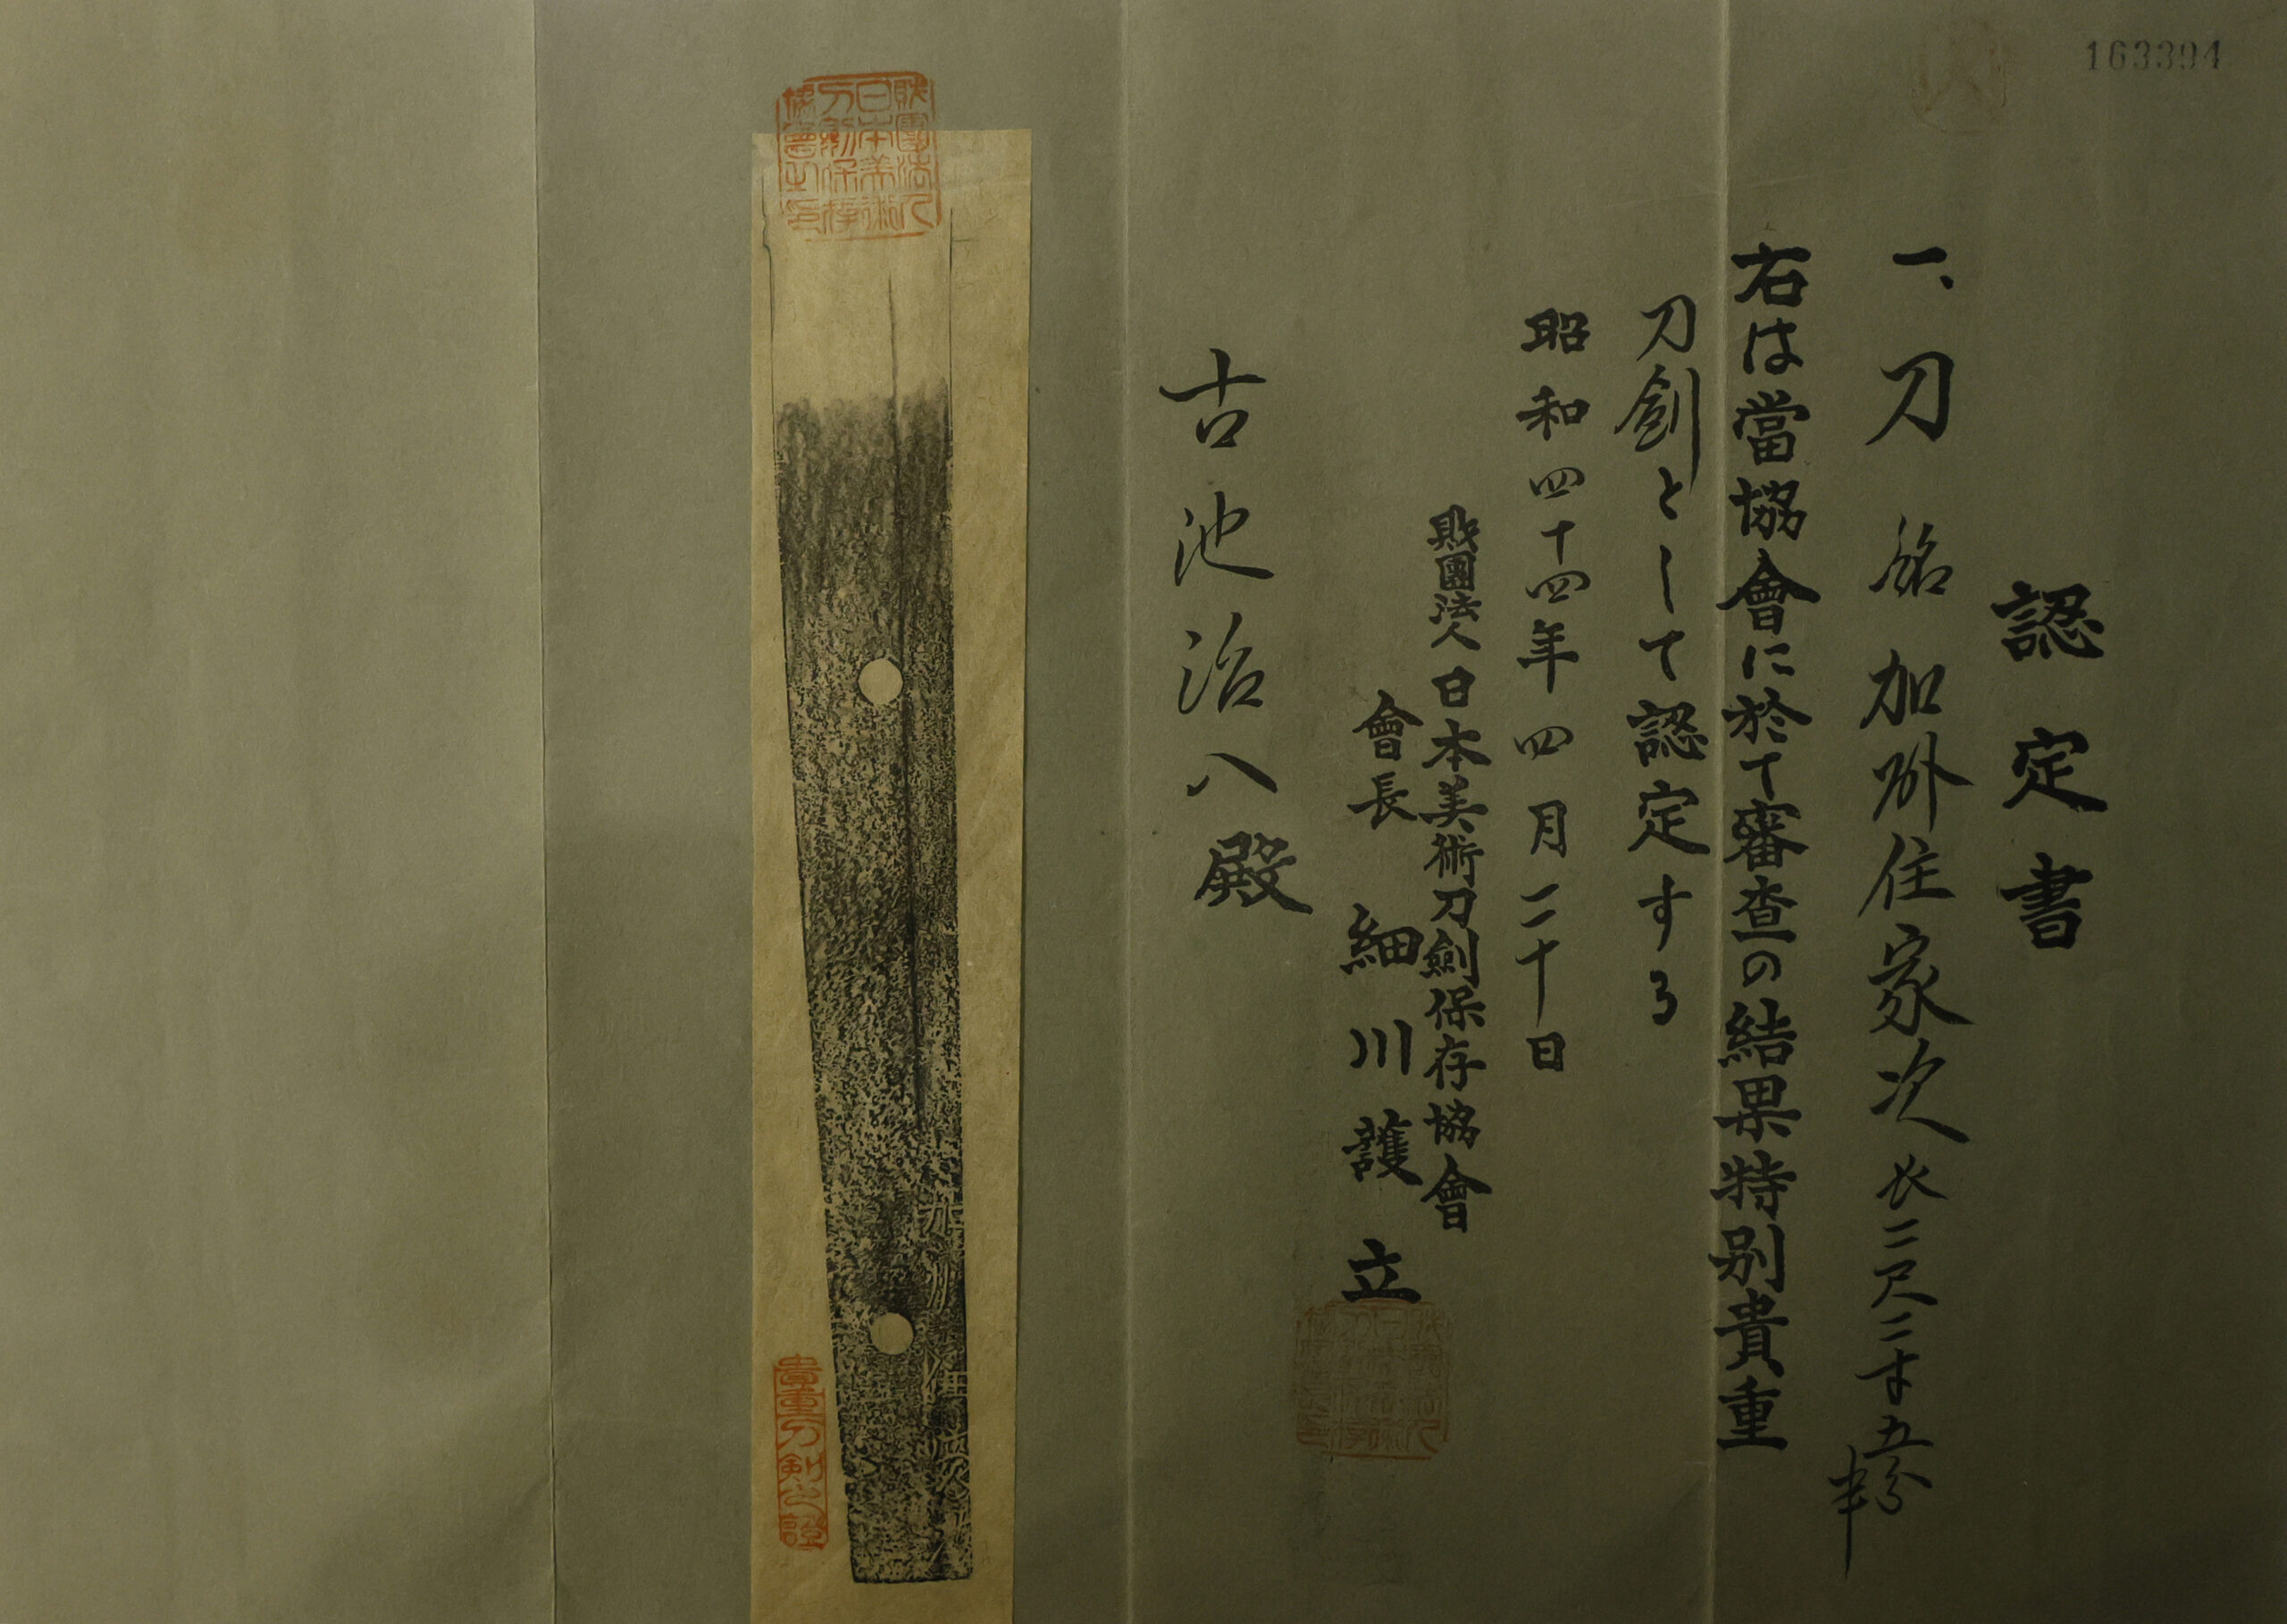 163394
認定書
一、刀 銘 加州住家次 長二尺二寸五分半
右は當協會に於て審査の結果特別貴重
刀劍として認定する
昭和四十四年四月二十日
財團法人日本美術刀劍保存協會
會長 細川護立
古池治八殿
財團法人
日本美術
刀劍保存
協會之印
加州住家次
貴重刀剣之證